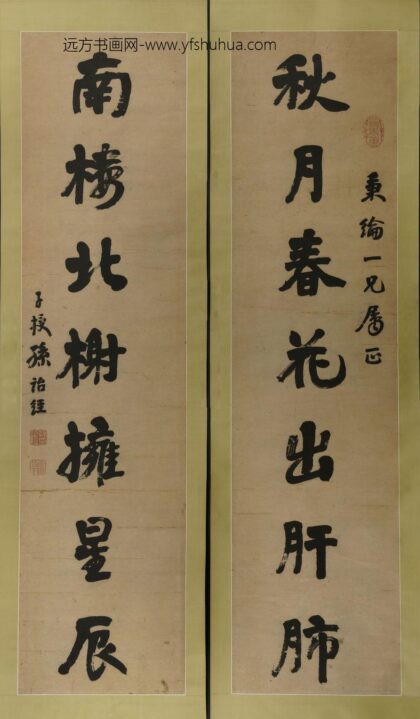 远方书画网-www.yfshuhua.com
秋月春花出肝肺
秉綸一兄屬正
南楼北榭擁星辰
子授孫詒經